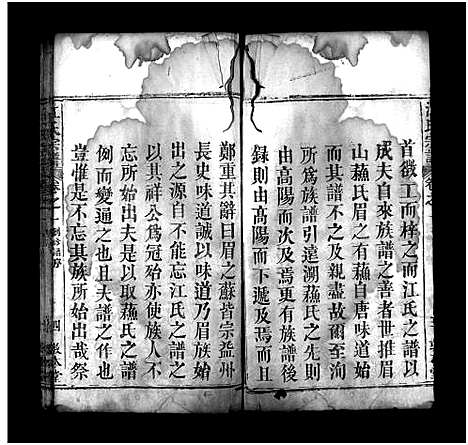 首徵工而梓之而江氏之譜以
成夫自來族譜之善者世推眉
山蘓氏眉之有蘓自唐味道始
而其譜不之及親盡故爾至洵
所爲族譜引遠溯蘓氏之先則
由高陽而次及焉更有族譜後
録則由高陽而下遞及焉而且
鄭重其辭曰眉之蘇皆宗益州
長史味道誠以味道乃眉族始
出之源自不能忘江氏之譜之
以其祥公爲冠殆亦使族人不
忘所始出夫是以取蘓氏之譜
例而變通之也且夫譜之作也
豈惟是不忘其族所始出哉祭
江氏宗譜 卷之